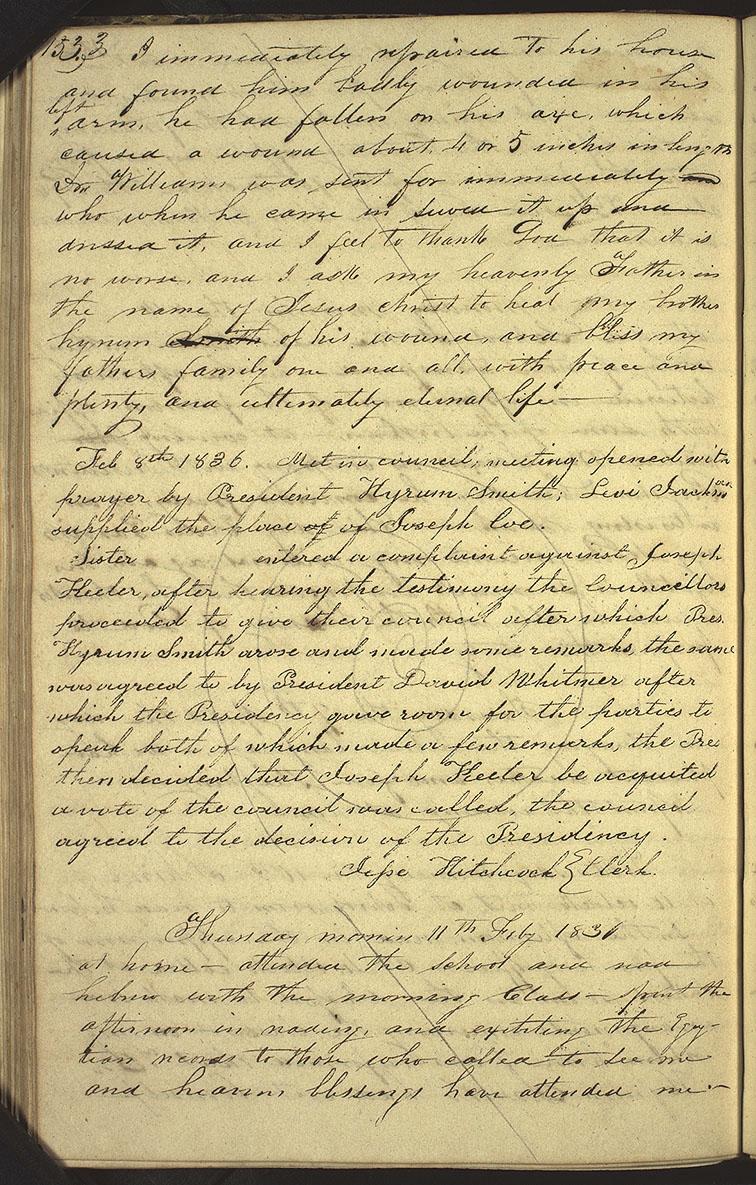 153 I immediately repaired to his house
and found him badly wounded in his
left
arm, he had fallen on his axe, which
caused a wound about 4 or 5 inches in length
Dr Williams was sent for immediately and
who when he came in sewed it up and
dressed it, and I feel to thank God that it is
no worse, and I ask my heavenly Father in
the name of Jesus christ to heal my brother
hyrum Smith of his wound, and bless my
fathers family one and all, with peace and
plenty, and ultimately eternal life—
Feb 8th 1836. Met in council, meeting opened with
prayer by President Hyrum Smith; Levi Jackman
supplied the place of of Joseph Coe.
Sister entered a complaint against Joseph
Keeler, after hearing the testimony the Councellors
proceeded to give their council after which Pres.
Hyrum Smith arose and made some remarks, the same
was agreed to by President David Whitmer after
which the Presidency gave room for the parties to
speak both of which made a few remarks, the Pre
then decided that Joseph Keeler be acquited
a vote of the council was called, the council
agreed to the decision of the Presidency.
Jesse Hitchcock } Clerk.
Thursday morning 11th Feby 1836
at home— attended the school and read
hebrew with the morning Class— spent the
afternoon in reading, and exhibiting the Egy-
tian records to those who called to see me
and heavens blessings have attended me—